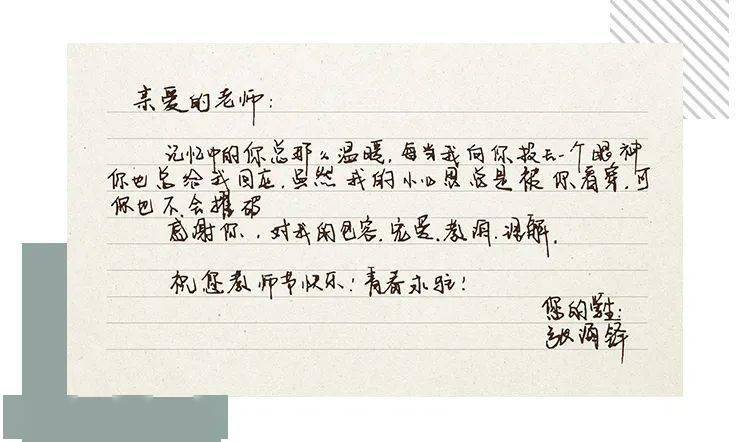 亲爱的老师：
记忆中的你总那么温暖，每当我向你投去一个眼神
你也总给我回应，虽然我的小心思总是被你看穿，可
你也不会揭破
感谢你，对我的包容、宠爱、教诲、谅解。
祝您教师节快乐！青春永驻！
您的学生：